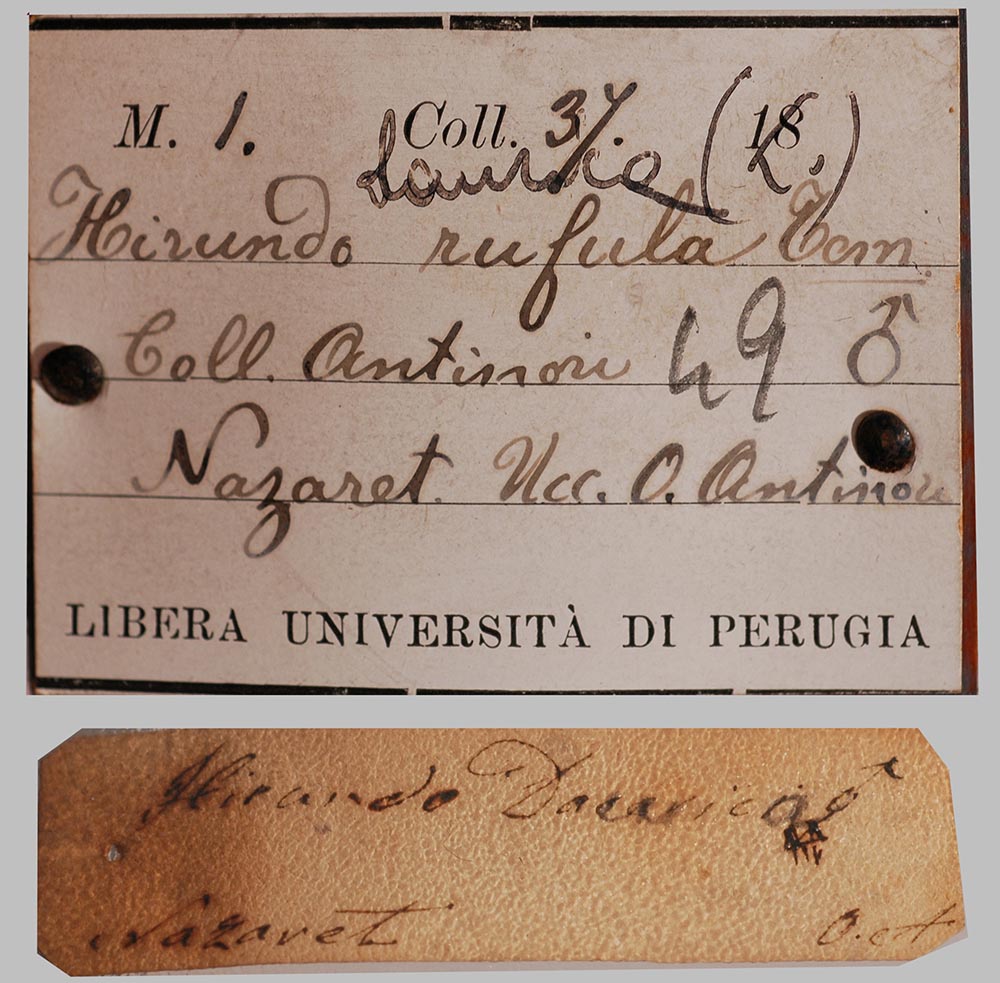 M. 1. Coll. 37. 18
daurica (L.)
Hirundo rufula Tem.
Coll. Antinori 49 ♂
Nazaret. Ucc. O. Antinori
LIBERA UNIVERSITÀ DI PERUGIA
Hirundo ♂
Nazaret